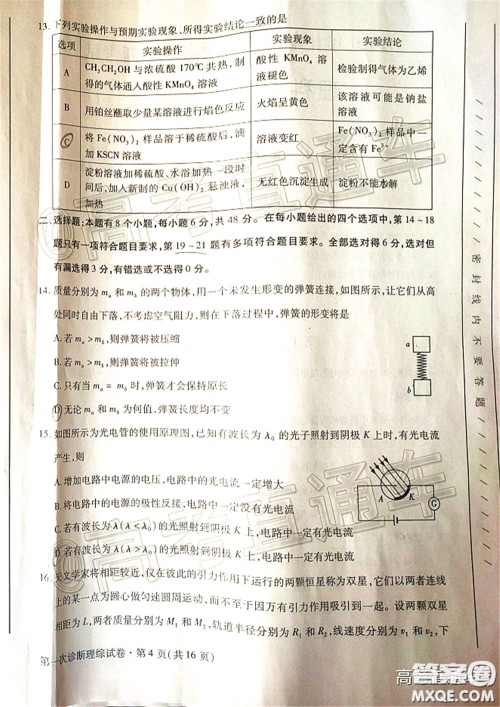 13. 下列实验操作与预期实验现象、所得实验结论一致的是
选项 实验操作 实验现象 实验结论
A CH₃CH₂OH 与浓硫酸 170℃ 共热，制得的气体通入酸性 KMnO₄ 溶液 酸性 KMnO₄ 溶液褪色 检验制得气体为乙烯
B 用铂丝蘸取少量某溶液进行焰色反应 火焰呈黄色 该溶液可能是钠盐溶液
C 将 Fe(NO₃)₂ 样品溶于稀硫酸后，滴加 KSCN 溶液 溶液变红 Fe(NO₃)₂ 样品中一定含有 Fe³⁺
D 淀粉溶液加稀硫酸、水浴加热一段时间后，加入新制的 Cu(OH)₂ 悬浊液，加热 无红色沉淀生成 淀粉不能水解
二、选择题：本题有 8 个小题，每小题 6 分，共 48 分。在每小题给出的四个选项中，第 14～18
题只有一项符合题目要求，第 19～21 题有多项符合题目要求。全部选对得 6 分，选对但
有漏选得 3 分，有错选或不选得 0 分。
14. 质量分别为 mₐ 和 m_b 的两个物体，用一个未发生形变的弹簧连接，如图所示，让它们从高
处同时自由下落，不考虑空气阻力，则在下落过程中，弹簧的形变将是
A. 若 mₐ > m_b，则弹簧将被压缩
B. 若 mₐ > m_b，则弹簧将被拉伸
C. 只有当 mₐ = m_b 时，弹簧才会保持原长
D. 无论 mₐ 和 m_b 为何值，弹簧长度均不变
a
b
15. 如图所示为光电管的使用原理图，已知有波长为 λ₀ 的光子照射到阴极 K 上时，有光电流
产生，则
A. 增加电路中电源的电压，电路中的光电流一定增大
B. 将电路中电源的极性反接，电路中一定没有光电流
C. 若有波长为 λ(λ < λ₀) 的光照射到阴极 K 上，电路中一定有光电流
D. 若有波长为 λ(λ > λ₀) 的光照射到阴极 K 上，电路中一定没有光电流
A K
G
16. 天文学家将相距较近，仅在彼此的引力作用下运行的两颗恒星称为双星，它们以两者连线
上的某一点为圆心做匀速圆周运动，而不至于因万有引力作用吸引到一起。设两颗双星
相距为 L，两者质量分别为 M₁ 和 M₂，轨道半径分别为 R₁ 和 R₂，线速度分别为 v₁ 和 v₂，下
第一次诊断理综试卷·第 4 页(共 16 页)
密封线内不要答题
高考直通车
答案圈
MXQE.COM